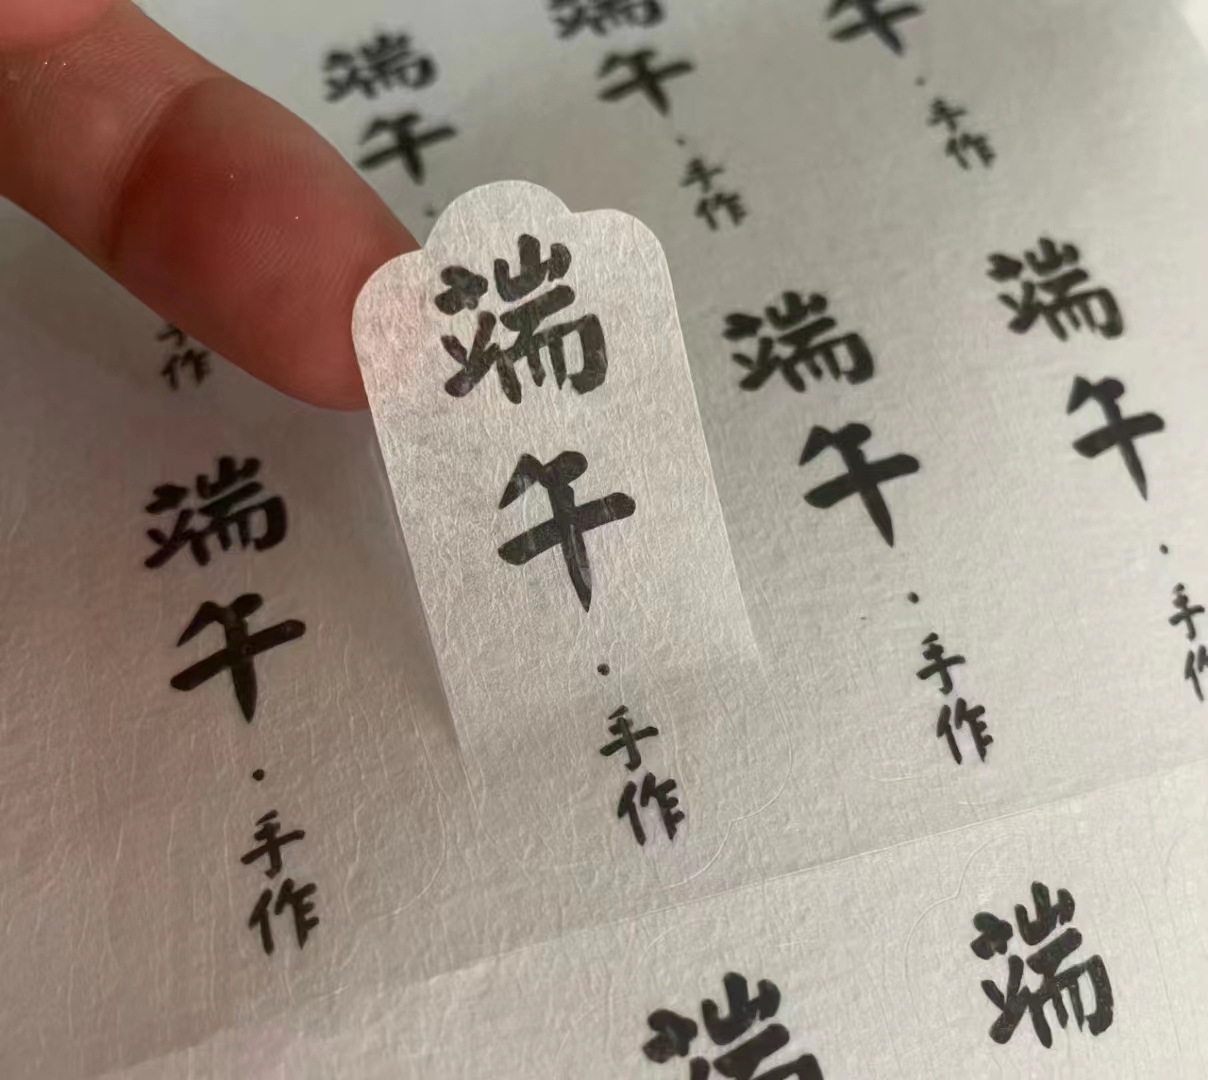 端午·
端午·手作
午·手作
手作
端午·手作
端午·手作
端午·手作
端午·手作
端
端